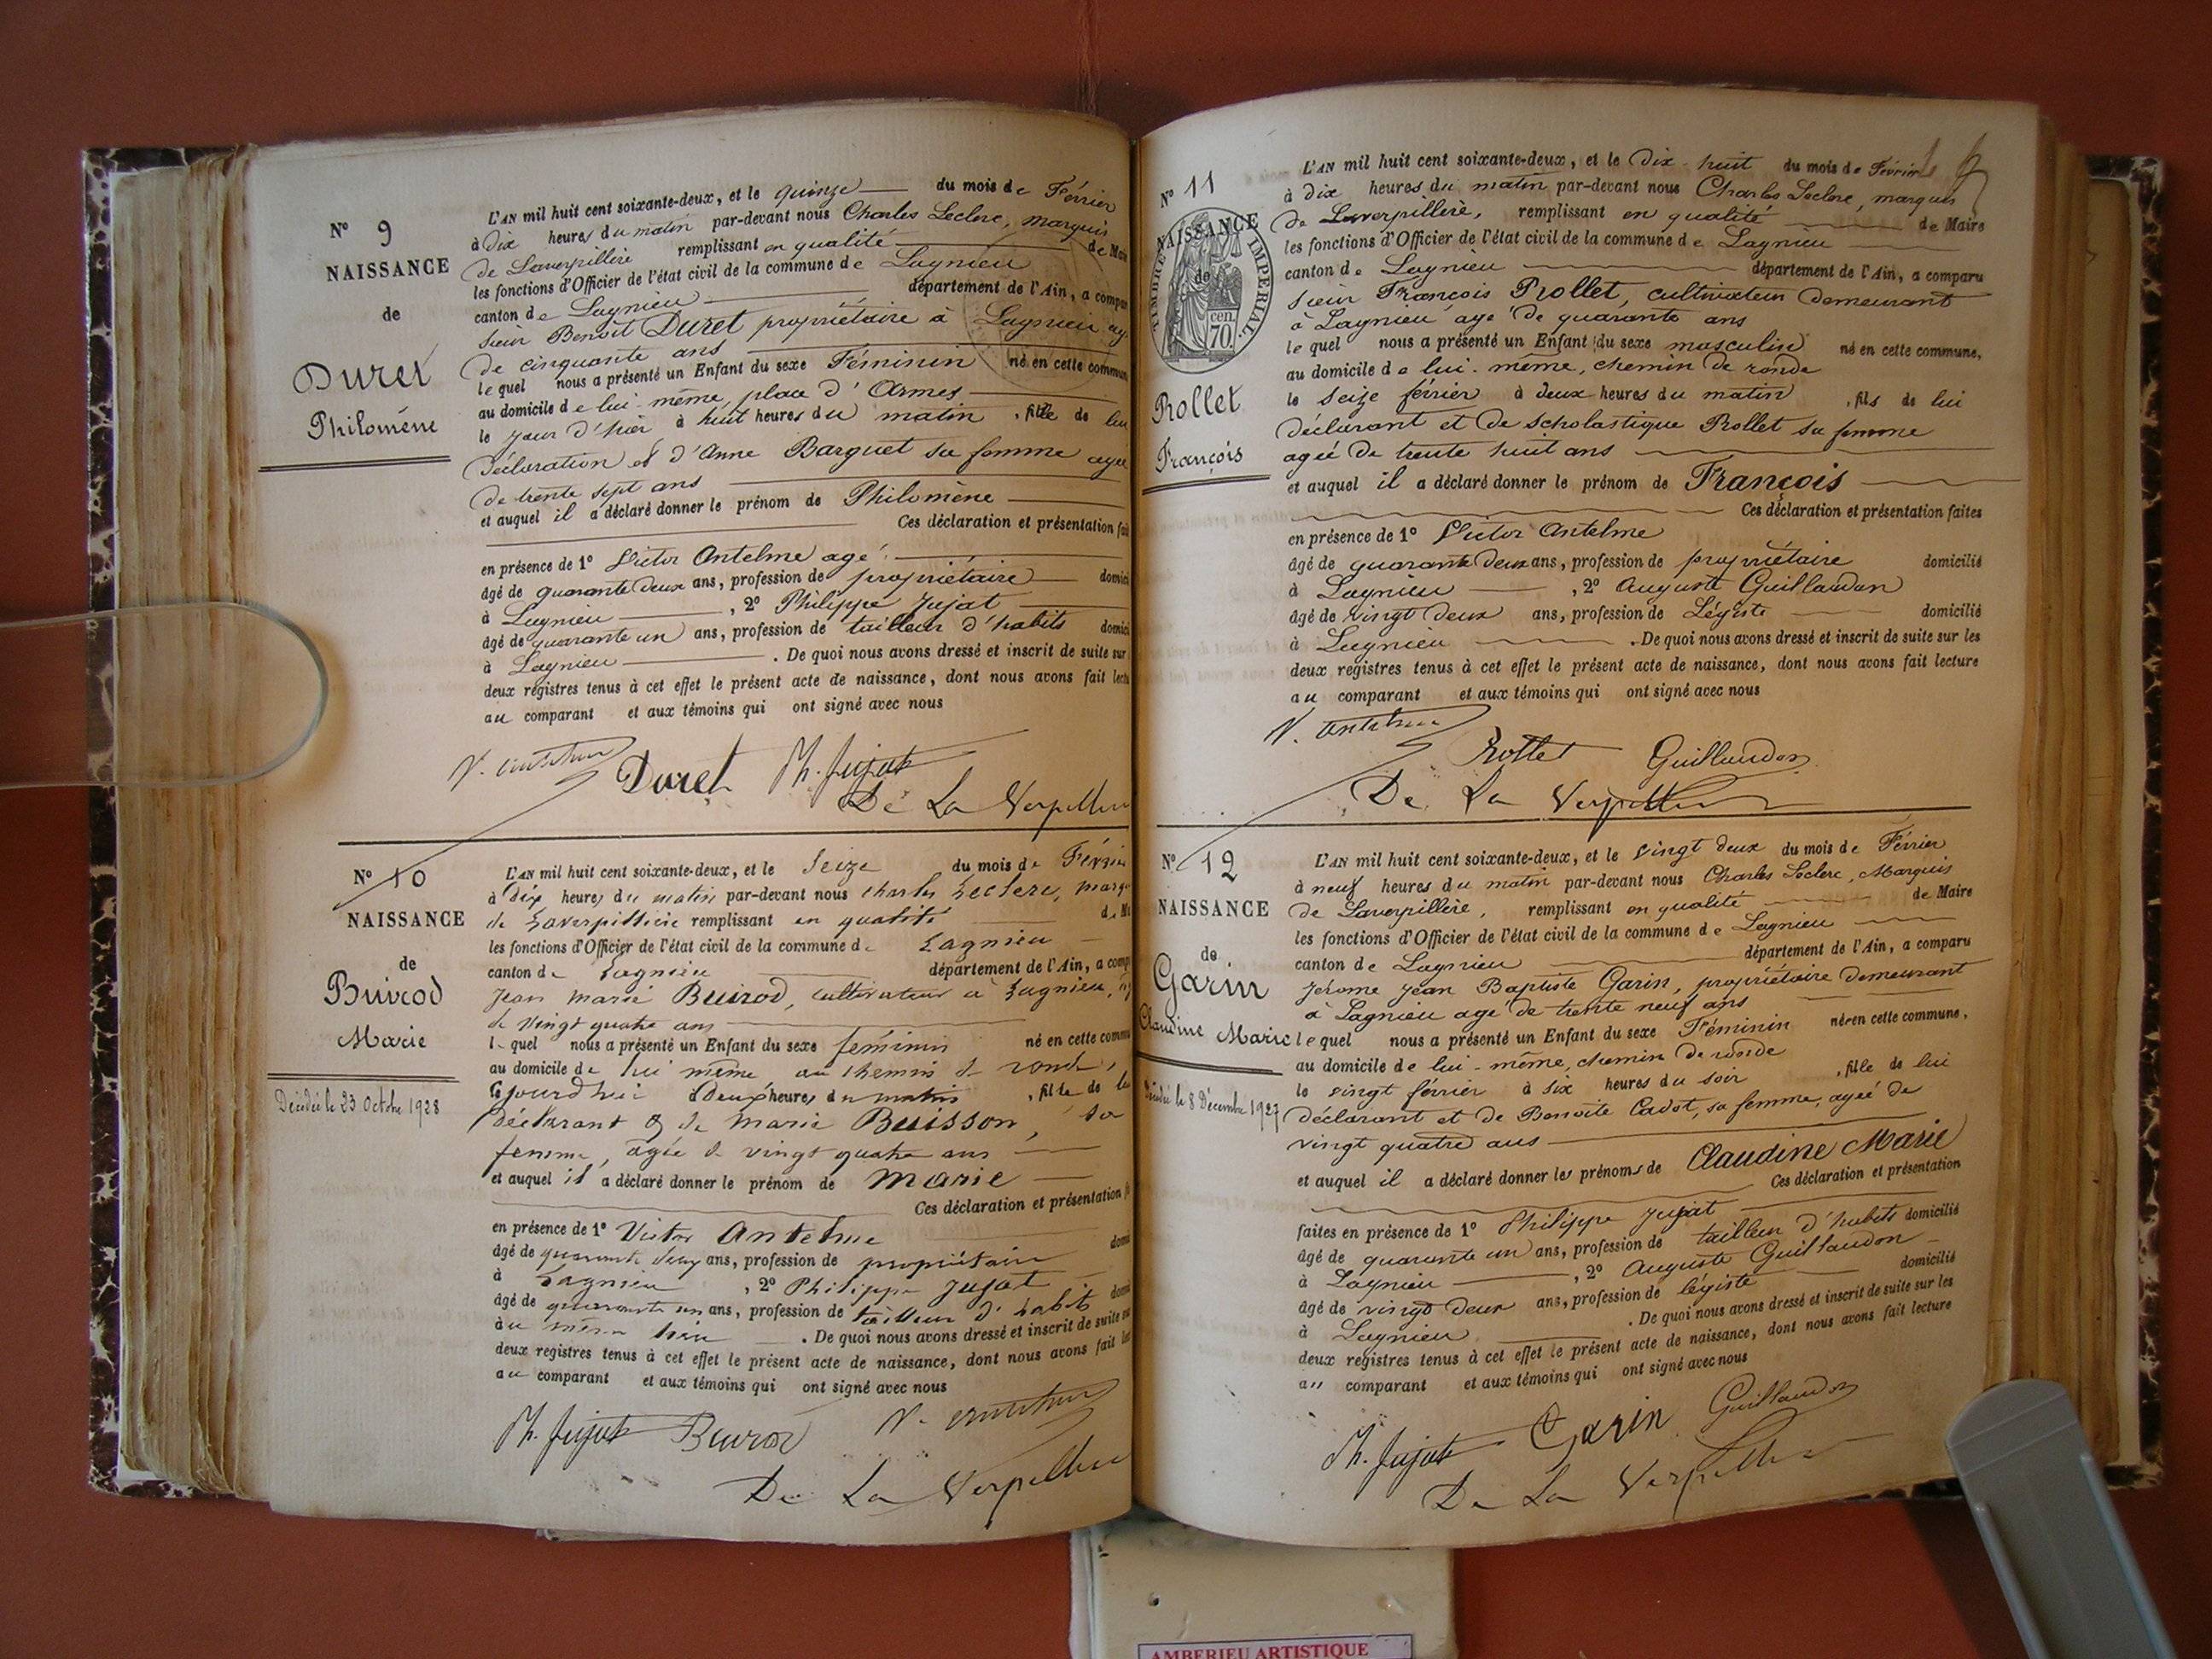 N° 9
NAISSANCE
de
Duret
Philomène
L'AN mil huit cent soixante-deux, et le quinze du mois de Février
à dix heures du matin par-devant nous Charles Leclerc, marquis
de Laverpillière remplissant en qualité de Mai
les fonctions d'Officier de l'état civil de la commune de Lagnieu
canton de Lagnieu département de l'Ain, a compa
sieur Benoit Duret propriétaire à Lagnieu ag
de cinquante ans
lequel nous a présenté un Enfant du sexe Féminin né en cette commun
au domicile de lui-même, place d'Armes
le jour d'hier à huit heures du matin, fille de lui
déclaration et d'Anne Barquet sa femme agée
de trente sept ans
et auquel il a déclaré donner le prénom de Philomène
Ces déclaration et présentation fai
en présence de 1° Victor Antelme agé
âgé de quarante deux ans, profession de propriétaire domici
à Lagnieu, 2° Philippe Jujat
âgé de quarante un ans, profession de tailleur d'habits domici
à Lagnieu. De quoi nous avons dressé et inscrit de suite sur
deux registres tenus à cet effet le présent acte de naissance, dont nous avons fait lectu
au comparant et aux témoins qui ont signé avec nous
Duret Ph. Jujat
De La Verpilliere
N° 10
NAISSANCE
de
Buirod
Marie
Décédée le 23 Octobre 1928
L'AN mil huit cent soixante-deux, et le Seize du mois de Février
à dix heures du matin par-devant nous Charles Leclerc, marqu
de Laverpillière remplissant en qualité de M
les fonctions d'Officier de l'état civil de la commune de Lagnieu
canton de Lagnieu département de l'Ain, a comp
Jean Marie Buirod, cultivateur à Lagnieu, ag
de vingt quatre ans
lequel nous a présenté un Enfant du sexe féminin né en cette commu
au domicile de lui même au chemin de ronde,
ce jourd'hui à deux heures du matin, fille de lu
déclarant & de Marie Buisson, sa
femme, agée de vingt quatre ans
et auquel il a déclaré donner le prénom de Marie
Ces déclaration et présentation f
en présence de 1° Victor Antelme
âgé de quarante deux ans, profession de propriétaire domi
à Lagnieu, 2° Philippe Jujat
âgé de quarante un ans, profession de tailleur d'habits domi
au même lieu. De quoi nous avons dressé et inscrit de suite sur
deux registres tenus à cet effet le présent acte de naissance, dont nous avons fait lect
au comparant et aux témoins qui ont signé avec nous
Ph. Jujat Buirod
De La Verpilliere
N° 11
NAISSANCE
de
TIMBRE IMPERIAL
70 cen.
Rollet
François
L'AN mil huit cent soixante-deux, et le dix-huit du mois de Février
à dix heures du matin par-devant nous Charles Leclerc, marquis
de Laverpillière, remplissant en qualité de Maire
les fonctions d'Officier de l'état civil de la commune de Lagnieu
canton de Lagnieu département de l'Ain, a comparu
sieur François Rollet, cultivateur demeurant
à Lagnieu agé de quarante ans
lequel nous a présenté un Enfant du sexe masculin né en cette commune,
au domicile de lui-même, chemin de ronde
le seize février à deux heures du matin, fils de lui
déclarant et de Scholastique Rollet sa femme
agée de trente huit ans
et auquel il a déclaré donner le prénom de François
Ces déclaration et présentation faites
en présence de 1° Victor Antelme
âgé de quarante deux ans, profession de propriétaire domicilié
à Lagnieu, 2° Auguste Guillaudon
âgé de vingt deux ans, profession de Légiste domicilié
à Lagnieu. De quoi nous avons dressé et inscrit de suite sur les
deux registres tenus à cet effet le présent acte de naissance, dont nous avons fait lecture
au comparant et aux témoins qui ont signé avec nous
V. Antelme
Rollet Guillaudon
De La Verpilliere
N° 12
NAISSANCE
de
Garin
Claudine Marie
Décédée le 8 Décembre 1927
L'AN mil huit cent soixante-deux, et le vingt deux du mois de Février
à neuf heures du matin par-devant nous Charles Leclerc, Marquis
de Laverpillière, remplissant en qualité de Maire
les fonctions d'Officier de l'état civil de la commune de Lagnieu
canton de Lagnieu département de l'Ain, a comparu
Jérome Jean Baptiste Garin, propriétaire demeurant
à Lagnieu agé de trente neuf ans
lequel nous a présenté un Enfant du sexe Féminin née en cette commune,
au domicile de lui-même, chemin de ronde
le vingt février à six heures du soir, fille de lui
déclarant et de Benoite Cadot, sa femme, agée de
vingt quatre ans
et auquel il a déclaré donner les prénoms de Claudine Marie
Ces déclaration et présentation
faites en présence de 1° Philippe Jujat
âgé de quarante un ans, profession de tailleur d'habits domicilié
à Lagnieu, 2° Auguste Guillaudon
âgé de vingt deux ans, profession de légiste domicilié
à Lagnieu. De quoi nous avons dressé et inscrit de suite sur les
deux registres tenus à cet effet le présent acte de naissance, dont nous avons fait lecture
au comparant et aux témoins qui ont signé avec nous
Ph. Jujat Garin Guillaudon
De La Verpilliere
AMBERIEU ARTISTIQUE